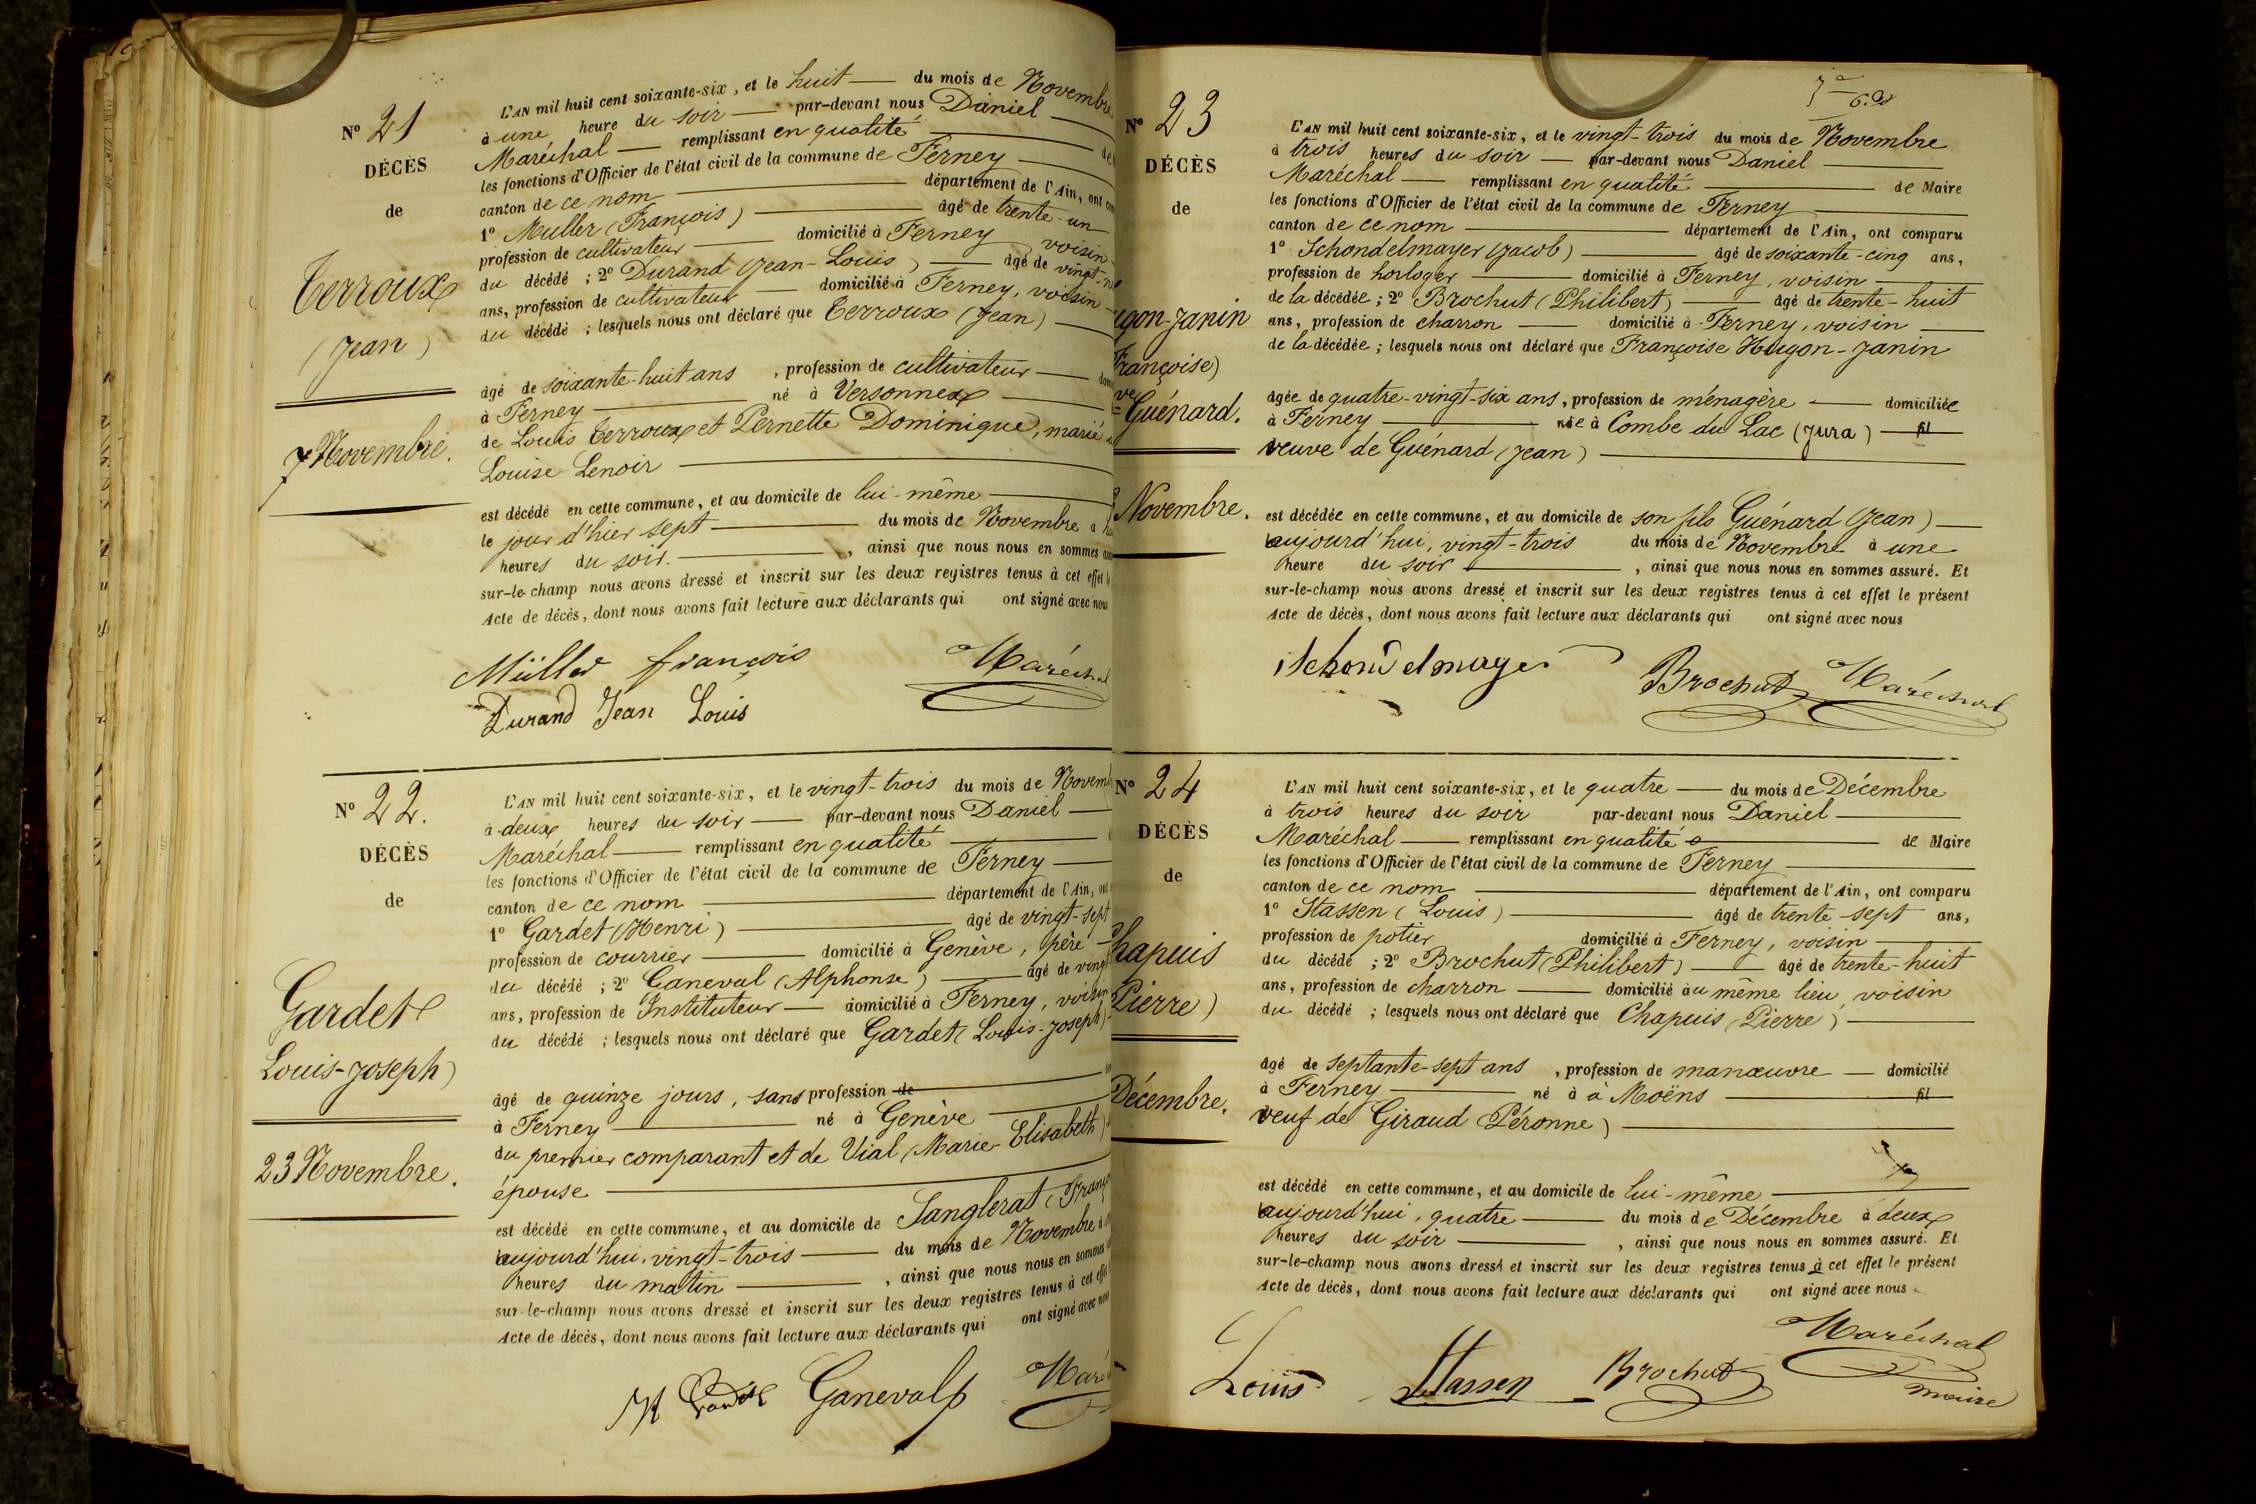 N° 21
DÉCÈS
de
Terroux
(Jean)
7 Novembre.
L'AN mil huit cent soixante-six, et le huit du mois de Novembre
à une heure du soir par-devant nous Daniel
Maréchal remplissant en qualité de
les fonctions d'Officier de l'état civil de la commune de Ferney
canton de ce nom département de l'Ain, ont
1° Muller (François) âgé de trente-un
profession de cultivateur domicilié à Ferney voisin
du décédé ; 2° Durand (Jean-Louis) âgé de vingt-
ans, profession de cultivateur domicilié à Ferney, voisin
du décédé ; lesquels nous ont déclaré que Terroux (Jean)
âgé de soixante-huit ans, profession de cultivateur
à Ferney né à Versonnex
de Louis Terroux et Pernette Dominique, marié
Louise Lenoir
est décédé en cette commune, et au domicile de lui-même
le jour d'hier sept du mois de Novembre à
heures du soir. , ainsi que nous nous en sommes
sur-le-champ nous avons dressé et inscrit sur les deux registres tenus à cet effet
Acte de décès, dont nous avons fait lecture aux déclarants qui ont signé avec nous
Müller françois Maréchal
Durand Jean Louis
N° 22.
DÉCÈS
de
Gardet
Louis-Joseph)
23 Novembre.
L'AN mil huit cent soixante-six, et le vingt-trois du mois de Novemb
à deux heures du soir par-devant nous Daniel
Maréchal remplissant en qualité
les fonctions d'Officier de l'état civil de la commune de Ferney
canton de ce nom département de l'Ain, ont
1° Gardet (Henri) âgé de vingt-sept
profession de courrier domicilié à Genève, père
du décédé ; 2° Ganeval (Alphonse) âgé de vingt
ans, profession de Instituteur domicilié à Ferney, voisin
du décédé ; lesquels nous ont déclaré que Gardet (Louis-Joseph)
âgé de quinze jours, sans profession de
à Ferney né à Genève
du premier comparant et de Vial (Marie-Elisabeth)
épouse
est décédé en cette commune, et au domicile de Sanglerat (Franç
aujourd'hui, vingt-trois du mois de Novembre à
heures du matin , ainsi que nous nous en sommes
sur-le-champ nous avons dressé et inscrit sur les deux registres tenus à cet effet
Acte de décès, dont nous avons fait lecture aux déclarants qui ont signé avec nous
Ganeval Maré
N° 23
DÉCÈS
de
ugon-Janin
Françoise)
ve Guénard.
Novembre.
L'AN mil huit cent soixante-six, et le vingt-trois du mois de Novembre
à trois heures du soir par-devant nous Daniel
Maréchal remplissant en qualité de Maire
les fonctions d'Officier de l'état civil de la commune de Ferney
canton de ce nom département de l'Ain, ont comparu
1° Schondelmayer (Jacob) âgé de soixante-cinq ans,
profession de horloger domicilié à Ferney, voisin
de la décédée ; 2° Brochut (Philibert) âgé de trente-huit
ans, profession de charron domicilié à Ferney, voisin
de la décédée ; lesquels nous ont déclaré que Françoise Hugon-Janin
âgée de quatre-vingt-six ans, profession de ménagère domiciliée
à Ferney née à Combe du Lac (Jura) fil
veuve de Guénard (Jean)
est décédée en cette commune, et au domicile de son fils Guénard (Jean)
aujourd'hui, vingt-trois du mois de Novembre à une
heure du soir , ainsi que nous nous en sommes assuré. Et
sur-le-champ nous avons dressé et inscrit sur les deux registres tenus à cet effet le présent
Acte de décès, dont nous avons fait lecture aux déclarants qui ont signé avec nous
Schondelmayer Brochut Maréchal
N° 24
DÉCÈS
de
Chapuis
Pierre)
Décembre.
L'AN mil huit cent soixante-six, et le quatre du mois de Décembre
à trois heures du soir par-devant nous Daniel
Maréchal remplissant en qualité de Maire
les fonctions d'Officier de l'état civil de la commune de Ferney
canton de ce nom département de l'Ain, ont comparu
1° Stassen (Louis) âgé de trente-sept ans,
profession de potier domicilié à Ferney, voisin
du décédé ; 2° Brochut (Philibert) âgé de trente-huit
ans, profession de charron domicilié au même lieu, voisin
du décédé ; lesquels nous ont déclaré que Chapuis (Pierre)
âgé de septante-sept ans, profession de manœuvre domicilié
à Ferney né à à Moëns fil
veuf de Giraud (Péronne)
est décédé en cette commune, et au domicile de lui-même
aujourd'hui, quatre du mois de Décembre à deux
heures du soir , ainsi que nous nous en sommes assuré. Et
sur-le-champ nous avons dressé et inscrit sur les deux registres tenus à cet effet le présent
Acte de décès, dont nous avons fait lecture aux déclarants qui ont signé avec nous
Louis Stassen Brochut Maréchal
maire